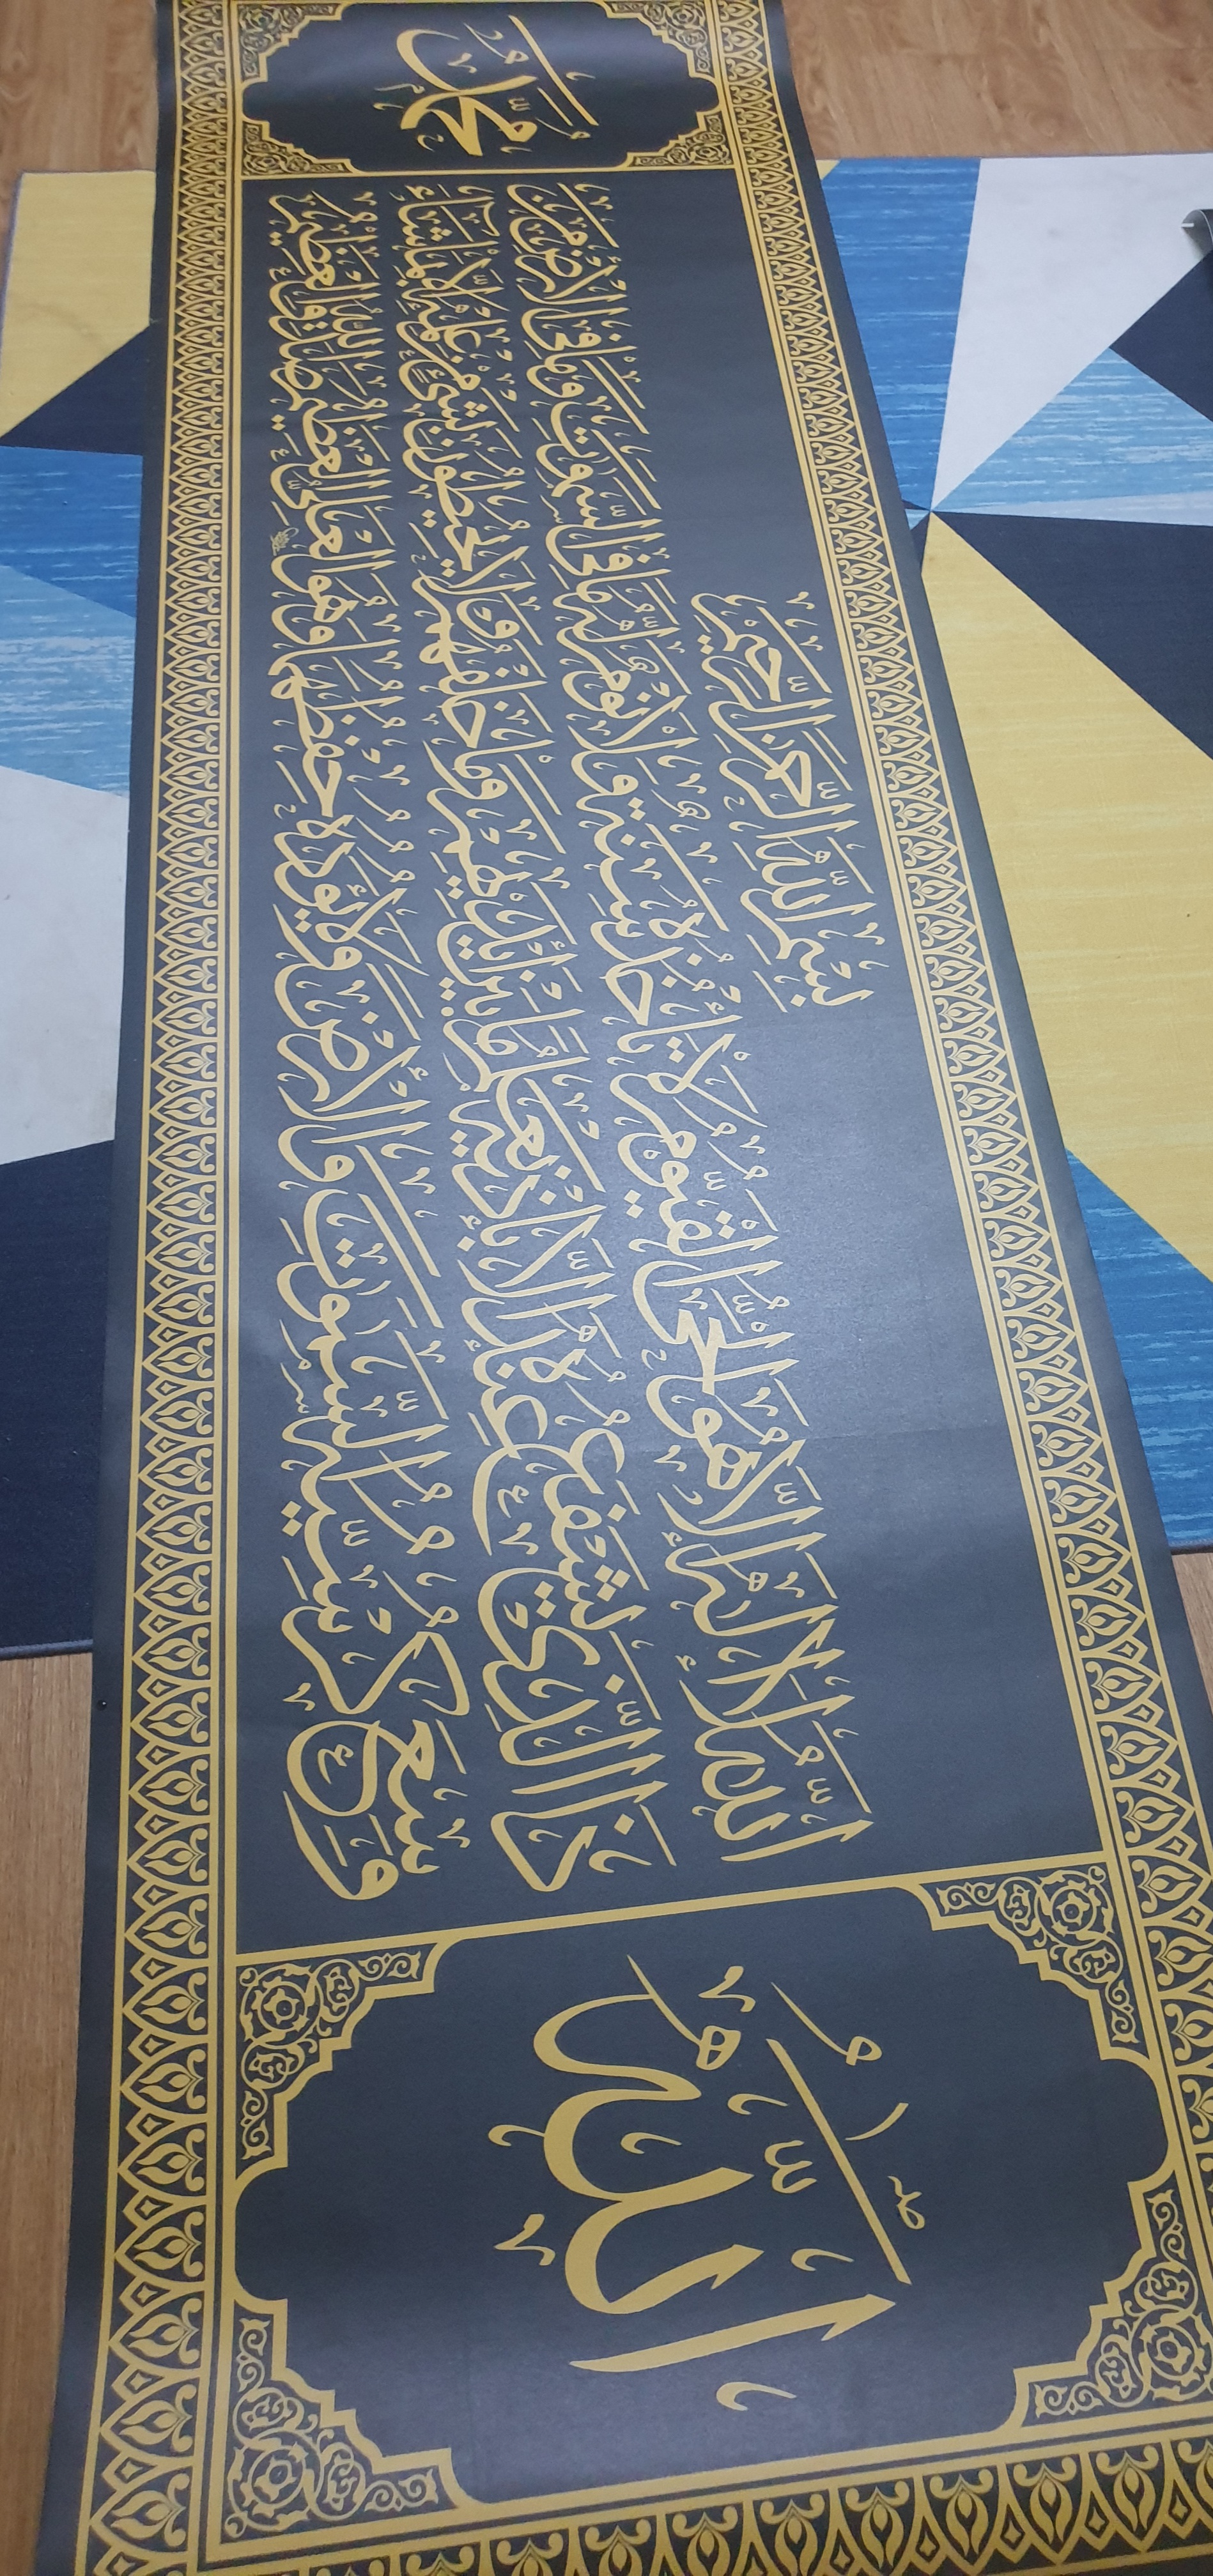 ٱللَّٰهُ
بِسْمِ ٱللَّٰهِ ٱلرَّحْمٰنِ ٱلرَّحِيمِ
ٱللَّٰهُ لَا إِلٰهَ إِلَّا هُوَ ٱلْحَيُّ ٱلْقَيُّومُ لَا تَأْخُذُهُ سِنَةٌ وَلَا نَوْمٌ لَهُ مَا فِي ٱلسَّمٰوَاتِ وَمَا فِي ٱلْأَرْضِ مَنْ
ذَا ٱلَّذِي يَشْفَعُ عِنْدَهُ إِلَّا بِإِذْنِهِ يَعْلَمُ مَا بَيْنَ أَيْدِيهِمْ وَمَا خَلْفَهُمْ وَلَا يُحِيطُونَ بِشَيْءٍ مِنْ عِلْمِهِ إِلَّا بِمَا شَاءَ
وَسِعَ كُرْسِيُّهُ ٱلسَّمٰوَاتِ وَٱلْأَرْضَ وَلَا يَئُودُهُ حِفْظُهُمَا وَهُوَ ٱلْعَلِيُّ ٱلْعَظِيمُ
مُحَمَّدٌ